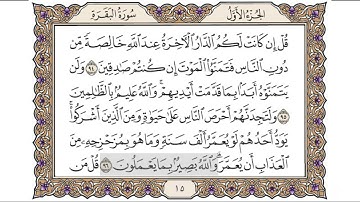 الجزء الأول
سورة البقرة
قل إن كانت لكم الدار الآخرة عند الله خالصة من
دون الناس فتمنوا الموت إن كنتم صدقين ٩٤ ولن
يتمنوه أبدا بما قدمت أيديهم والله عليم بالظلمين
٩٥ ولتجدنهم أحرص الناس على حيوة ومن الذين أشركوا
يود أحدهم لو يعمر ألف سنة وما هو بمزحزحه من
العذاب أن يعمر والله بصير بما يعملون ٩٦ قل من
١٥